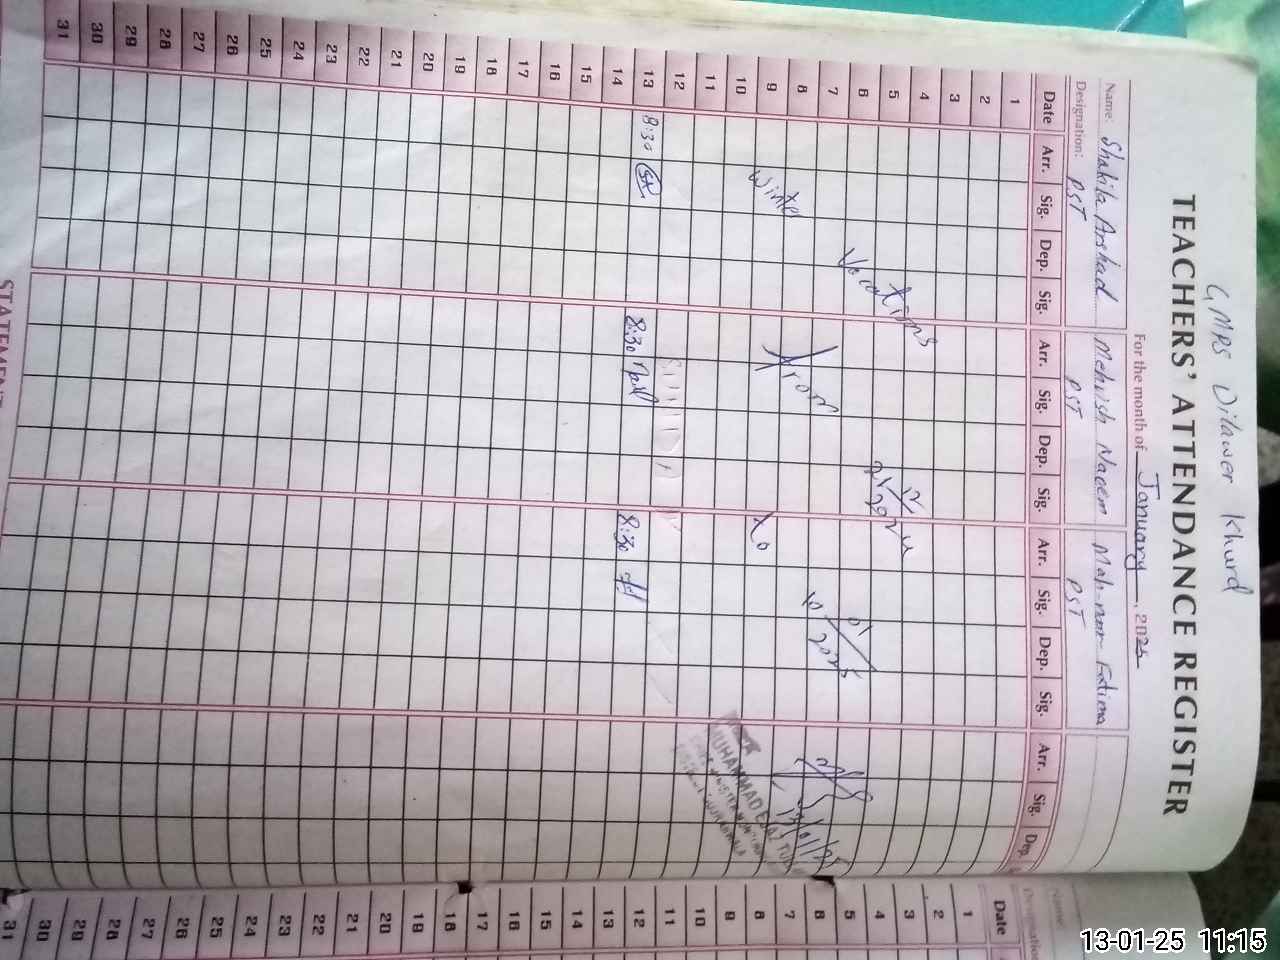 GMPS Dilawer Khurd
TEACHERS' ATTENDANCE REGISTER
For the month of January, 2025
Name: Shakila Arshad Mehvish Naeem Mah noor Fatima
Designation: PST PST PST
Date Arr. Sig. Dep. Sig. Arr. Sig. Dep. Sig. Arr. Sig. Dep. Sig. Arr. Sig. Dep.
1
2
3
4
5
6
7
8
9
10
11
12
13 8:30 8:30 8:30
14
15
16
17
18
19
20
21
22
23
24
25
26
27
28
29
30
31
Winter Vocations From
to
13/01/25
MUHAMMAD EJAZ
STATEMENT
Name:
Designation:
Date
1
2
3
4
5
6
7
8
9
10
11
12
13
14
15
16
17
18
19
20
21
22
23
24
25
26
27
28
29
30
31
13-01-25 11:15